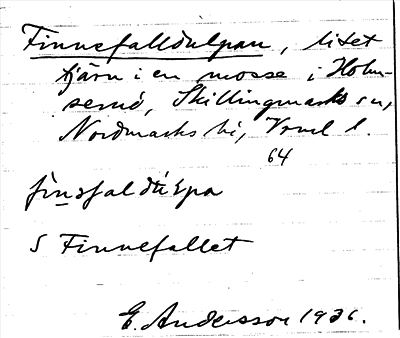 Finnefalldulpan, litet
tjärn i en mosse i Holm-
sermo, Skillingmarks sn,
Nordmarks hd, Vrml l.
64
S Finnefallet
E. Andersson 1936.